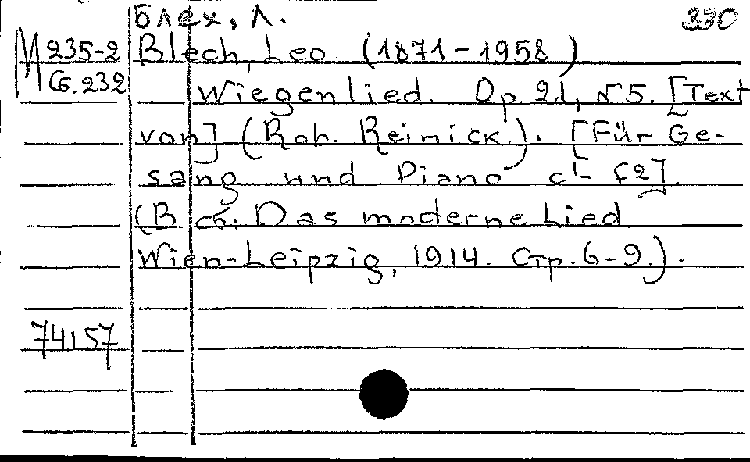 Блех, Л.
230
М 235-2 Blech, Leo (1871-1958)
Сб. 232 Wiegenlied. Op 21, №5. [Text
von] (Rob. Reinick.). [Für Ge-
sang und Piano c¹- f2]
(В сб: Das moderne Lied
Wien-Leipzig, 1914. Стр. 6-9.).
74157